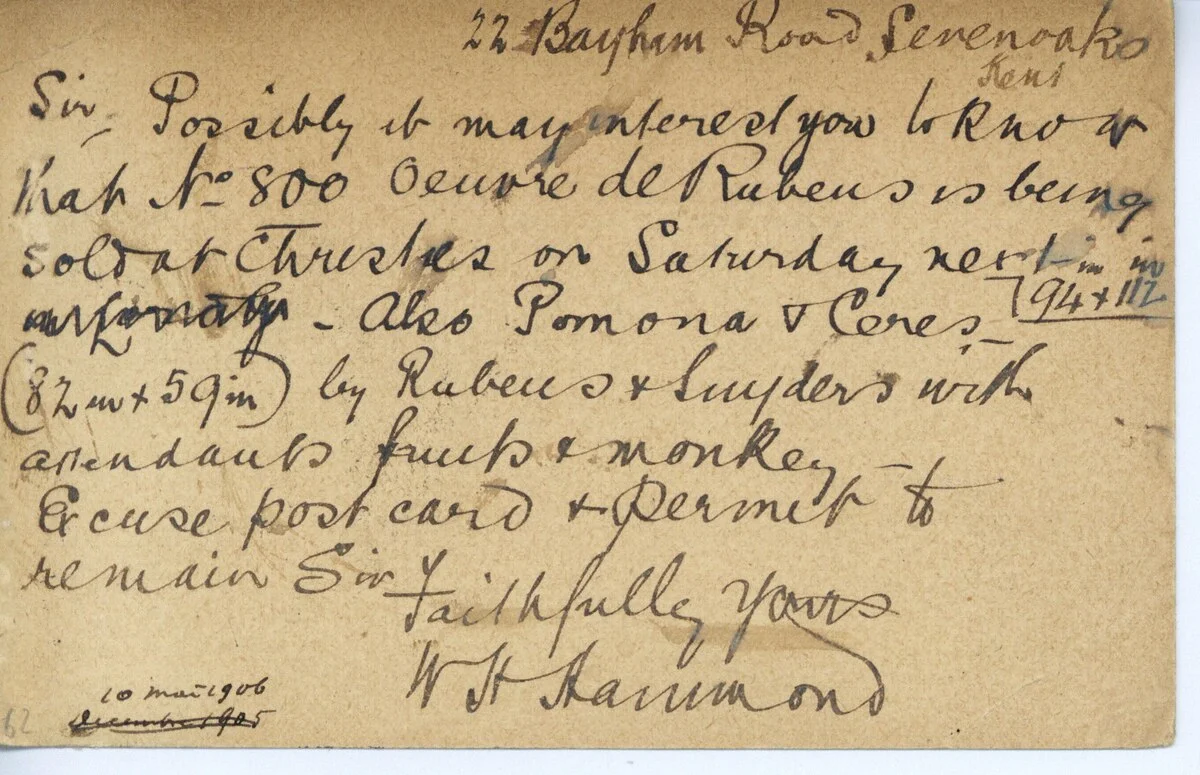 22 Bayham Road Sevenoaks
Kent
Sir, Possibly it may interest you to know
that No 800 Oeuvre de Rubens is being
sold at Christies on Saturday next
94 in + 112 in
- Also Pomona & Ceres -
(82 in + 59 in) by Rubens & Snyders with
attendants fruits & monkey -
Excuse post card & permit to
remain Sir
Faithfully Yours
W H Hammond
10 mai 1906
Decembre 1905
62